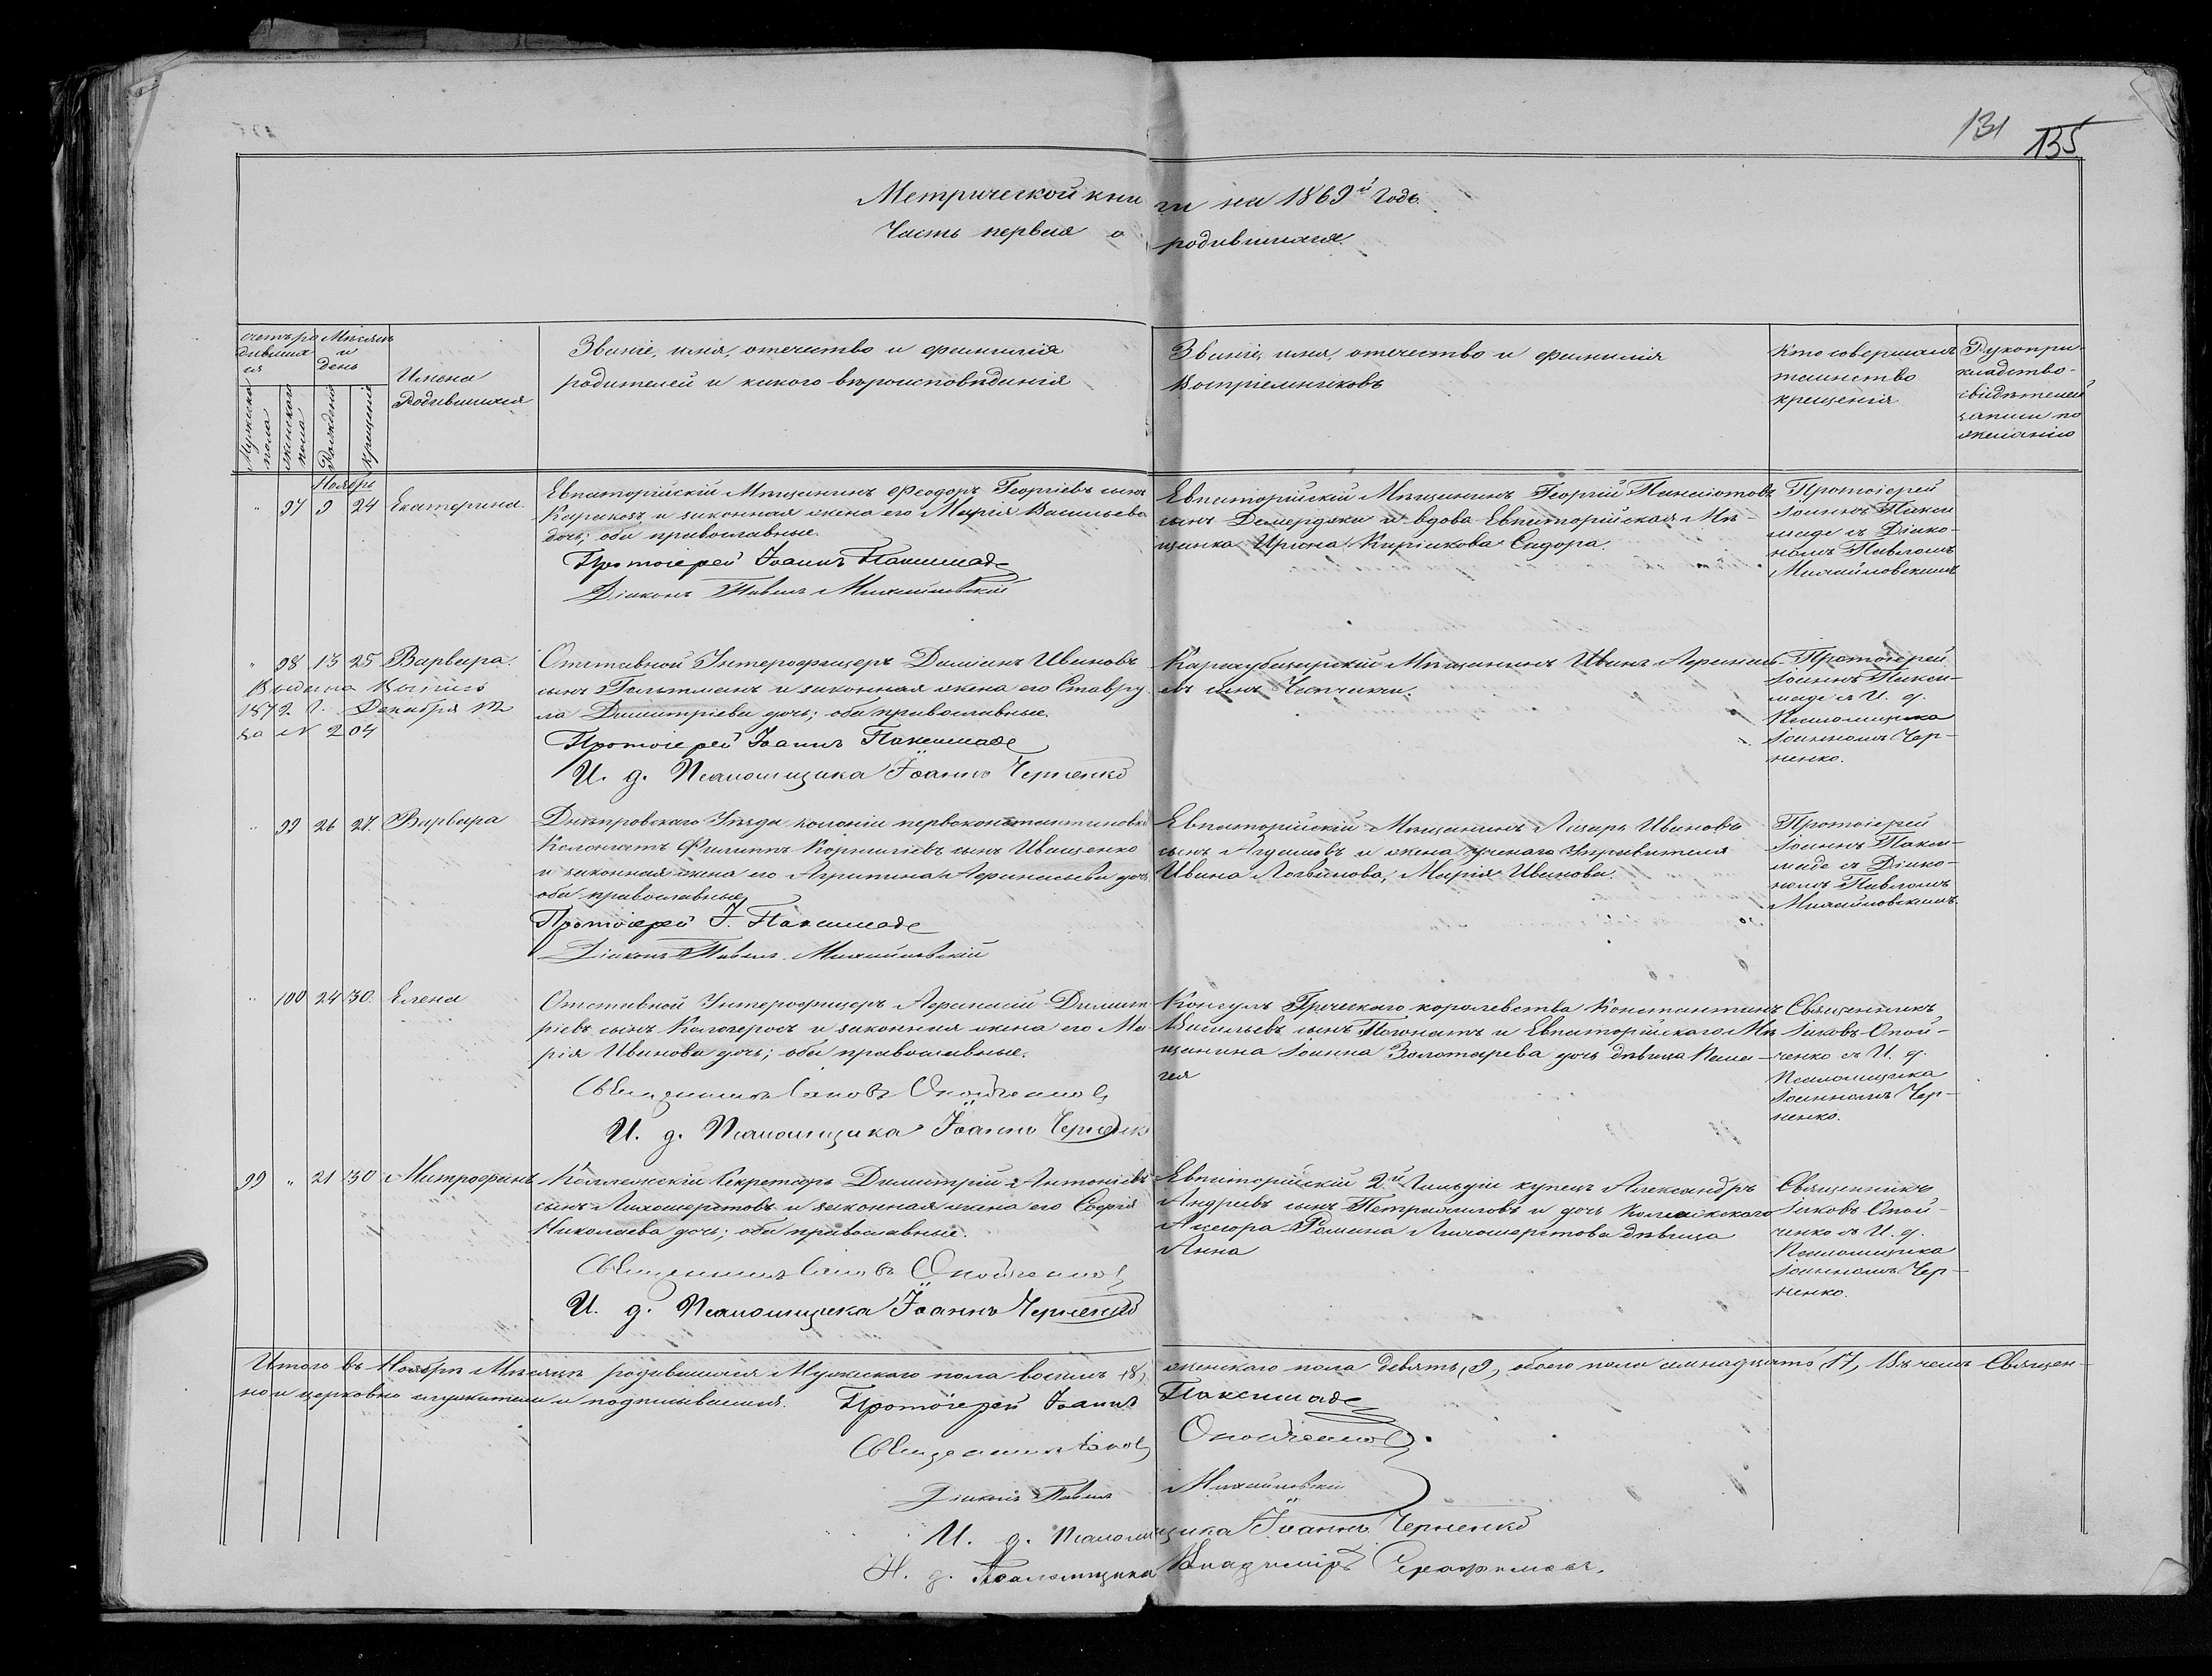 131 135
Метрической книги на 1869й годъ.
Часть первая о родившихся.
Счетъ родившихся
Мужеска пола
женскаго пола
Мѣсяцъ и день
Рожденія
крещенія
Имена Родившихся
Званіе, имя, отечество и фамилія
родителей и какого вѣроисповѣданія
Званіе, имя, отечество и фамилія
Воспріемниковъ
Кто совершалъ
таинство
крещенія
Рукопри-
кладство
свидѣтелей
записи по
желанію
Ноябрь
" 97 9 24 Екатерина.
Евпаторійскій Мѣщанинъ Феодоръ Георгіевъ сынъ
Каракозъ и законная жена его Марія Васильева
дочь; оба православные.
Протоіерей Іоаннъ Паксимаде
Діаконъ Павелъ Михайловскій
Евпаторійскій Мѣщанинъ Георгій Панаіотовъ
сынъ Демерджи и вдова Евпаторійская Мѣ-
щанка Ирина Киріакова Сидора.
Протоіерей
Іоаннъ Пакси
маде съ Діако-
номъ Павломъ
Михайловскимъ
" 98 13 25 Варвара.
Выдана Выпись
1872 г. Декабря
за N 204
Отставной Унтерофицеръ Даміанъ Ивановъ
сынъ Гальтманъ и законная жена его Ставру
ла Димитріева дочь; оба православные.
Протоіерей Іоаннъ Паксимаде
И. д. Псаломщика Іоаннъ Черненко
Карасубазарскій Мѣщанинъ Иванъ Афанась-
евъ сынъ Чапчикчи.
Протоіерей
Іоаннъ Пакси-
маде съ И. д.
Псаломщика
Іоанномъ Чер-
ненко.
" 99 26 27. Варвара
Днѣпровскаго Уѣзда колоніи первоконстантиновки
Колонистъ Филиппъ Корниліевъ сынъ Иващенко
и законная жена его Агрипина Афанасьева дочь,
оба православные
Протоіерей І. Паксимаде
Діаконъ Павелъ Михайловскій
Евпаторійскій Мѣщанинъ Лазарь Ивановъ
сынъ и жена ученаго Управителя
Ивана Логвинова, Марія Иванова.
Протоіерей
Іоаннъ Пакси-
маде съ Діако-
номъ Павломъ
Михайловскимъ.
" 100 24 30. Елена
Отставной Унтерофицеръ Афанасій Димит
ріевъ сынъ Калогеросъ и законная жена его Ма-
рія Иванова дочь; оба православные.
Священникъ Іаковъ Опойченко
И. д. Псаломщика Іоаннъ Черненко
Консулъ Греческаго королевства Константинъ
Васильевъ сынъ Погонатъ и Евпаторійскаго Мѣ
щанина Іоанна Золотарева дочь дѣвица Пела-
гея
Священникъ
Іаковъ Опой-
ченко съ И. д.
Псаломщика
Іоанномъ Чер-
ненко.
99 " 21 30 Митрофанъ
Коллежскій Секретарь Димитрій Антоніевъ
сынъ Лихошерстовъ и законная жена его Софія
Николаева дочь; оба православные.
Священникъ Іаковъ Опойченко
И. д. Псаломщика Іоаннъ Черненко
Евпаторійскій 2й Гильдіи купецъ Александръ
Андреевъ сынъ и дочь Коллежскаго
Асесора Романа Лихошерстова дѣвица
Анна
Священникъ
Іаковъ Опой-
ченко съ И. д.
Псаломщика
Іоанномъ Чер-
ненко.
Итого въ Ноябрѣ Мѣсяцѣ родившихся Мужскаго пола восемь (8), женскаго пола девять (9), обоего пола семнадцать 17, Въ чемъ Священ-
но и церковно служители и подписываемся. Протоіерей Іоаннъ Паксимаде
Священникъ Іаковъ Опойченко.
Діаконъ Павелъ Михайловскій
И. д. Псаломщика Іоаннъ Черненко
И. д. Псаломщика Владиміръ Серафимовъ.